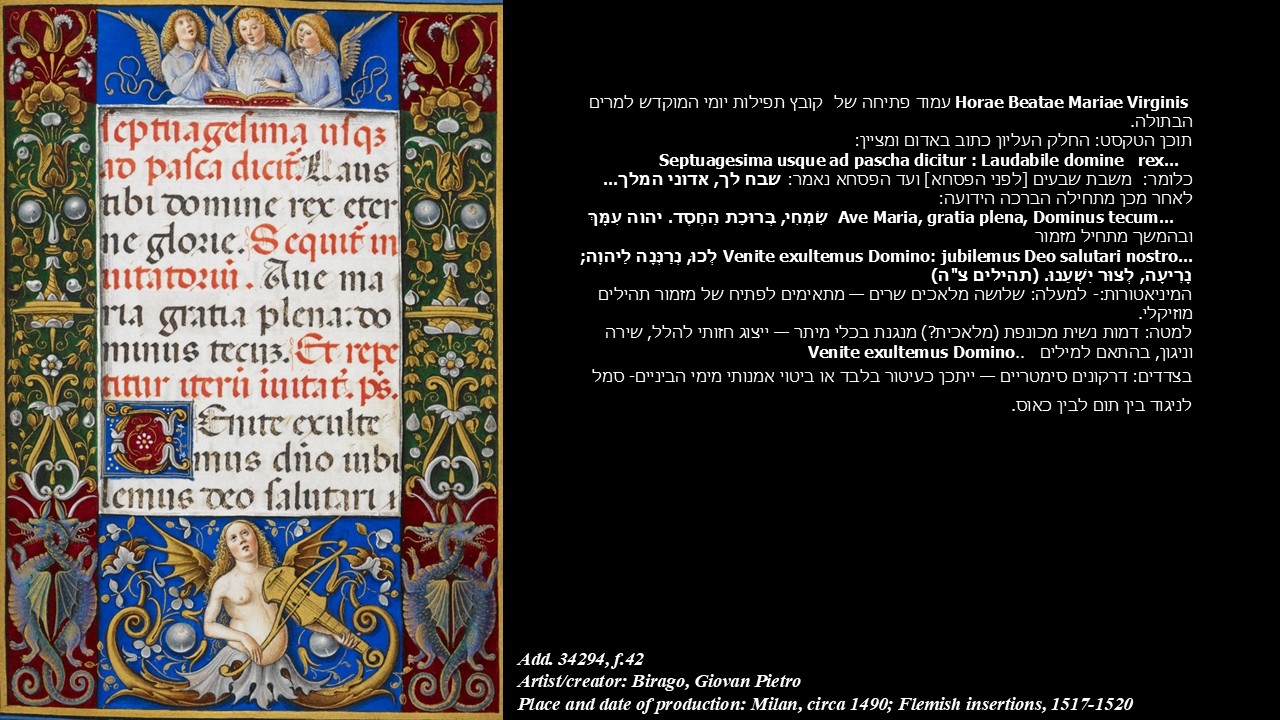 septuagesima usqz
ad pasca dicit. Laus
tibi domine rex eter
ne glorie. Sequit in
uitatoriū. Aue ma
ria gratia plena: do
minus tecuz. Et repe
titur iterū inuitat. ps.
Venite exulte
mus dño iubi
lemus deo salutari
Horae Beatae Mariae Virginis עמוד פתיחה של קובץ תפילות יומי המוקדש למרים
הבתולה.
תוכן הטקסט: החלק העליון כתוב באדום ומציין:
Septuagesima usque ad pascha dicitur : Laudabile domine rex...
כלומר: משבת שבעים [לפני הפסחא] ועד הפסחא נאמר: שבח לך, אדוני המלך...
לאחר מכן מתחילה הברכה הידועה:
Ave Maria, gratia plena, Dominus tecum... שִׂמְחִי, בְּרוּכַת הַחֶסֶד. יהוה עִמָּךְ
ובהמשך מתחיל מזמור
Venite exultemus Domino: jubilemus Deo salutari nostro... לְכוּ, נְרַנְּנָה לַיהוָה;
נָרִיעָה, לְצוּר יִשְׁעֵנוּ. (תהילים צ"ה)
המיניאטורות:- למעלה: שלושה מלאכים שרים — מתאימים לפתיח של מזמור תהילים
מוזיקלי.
למטה: דמות נשית מכונפת (מלאכית?) מנגנת בכלי מיתר — ייצוג חזותי להלל, שירה
וניגון, בהתאם למילים .. Venite exultemus Domino
בצדדים: דרקונים סימטריים — ייתכן כעיטור בלבד או ביטוי אמנותי מימי הביניים- סמל
לניגוד בין תום לבין כאוס.
Add. 34294, f.42
Artist/creator: Birago, Giovan Pietro
Place and date of production: Milan, circa 1490; Flemish insertions, 1517-1520